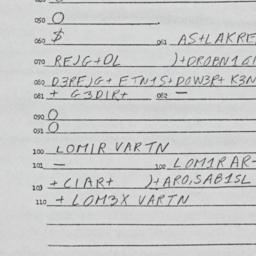 050 O
060 $ 061 AS+LAKRE
070 REJG+OL )+DROBN1GI
080 D3REJG+ETN1S+DOW3R+K3N
081 + G3DIR+ 082 —
090 O
091 O
100 LOMIR VARTN
101 — 100 LOM1RAR-
103 + CIAR+ )+ARO,SAB1SL
110 + LOM3X VARTN